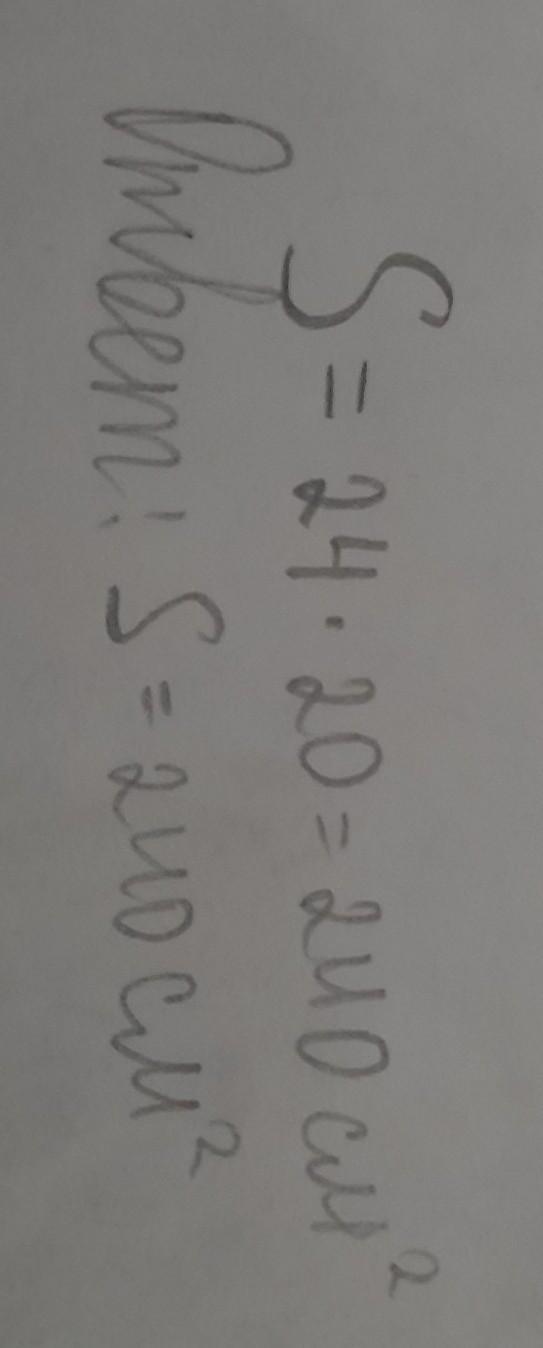 S = 24 · 20 = 240 см²
Ответ: S = 240 см²